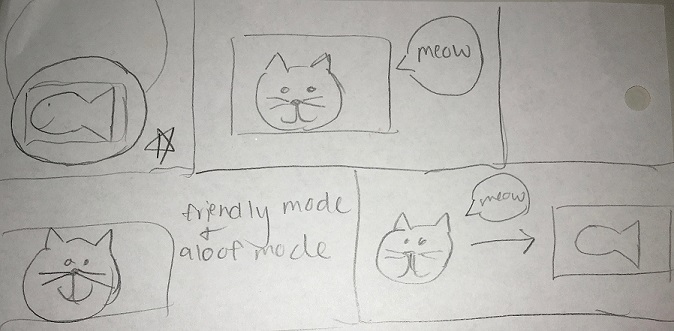 meow
friendly mode
+
aloof mode
meow